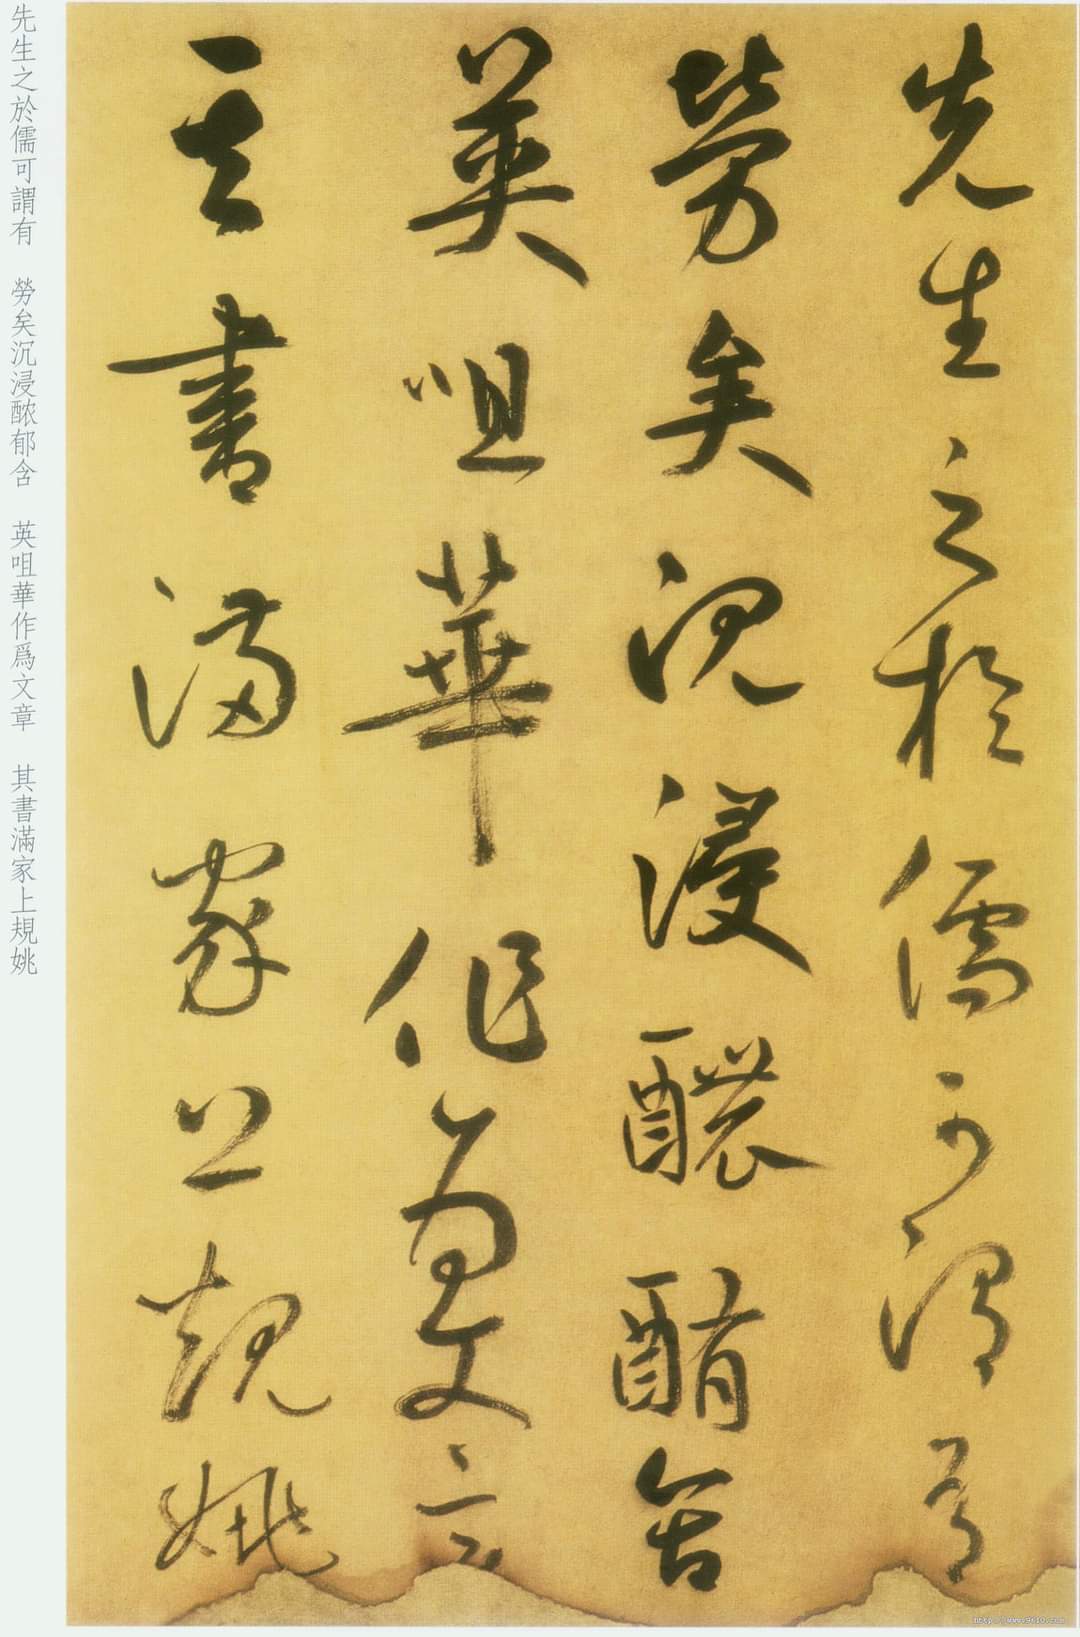 先生之於儒可謂有
勞矣沉浸醲郁含
英咀華作為文章
其書滿家上規姚
先生之於儒可謂有 勞矣沉浸醲郁含 英咀華作爲文章 其書滿家上規姚